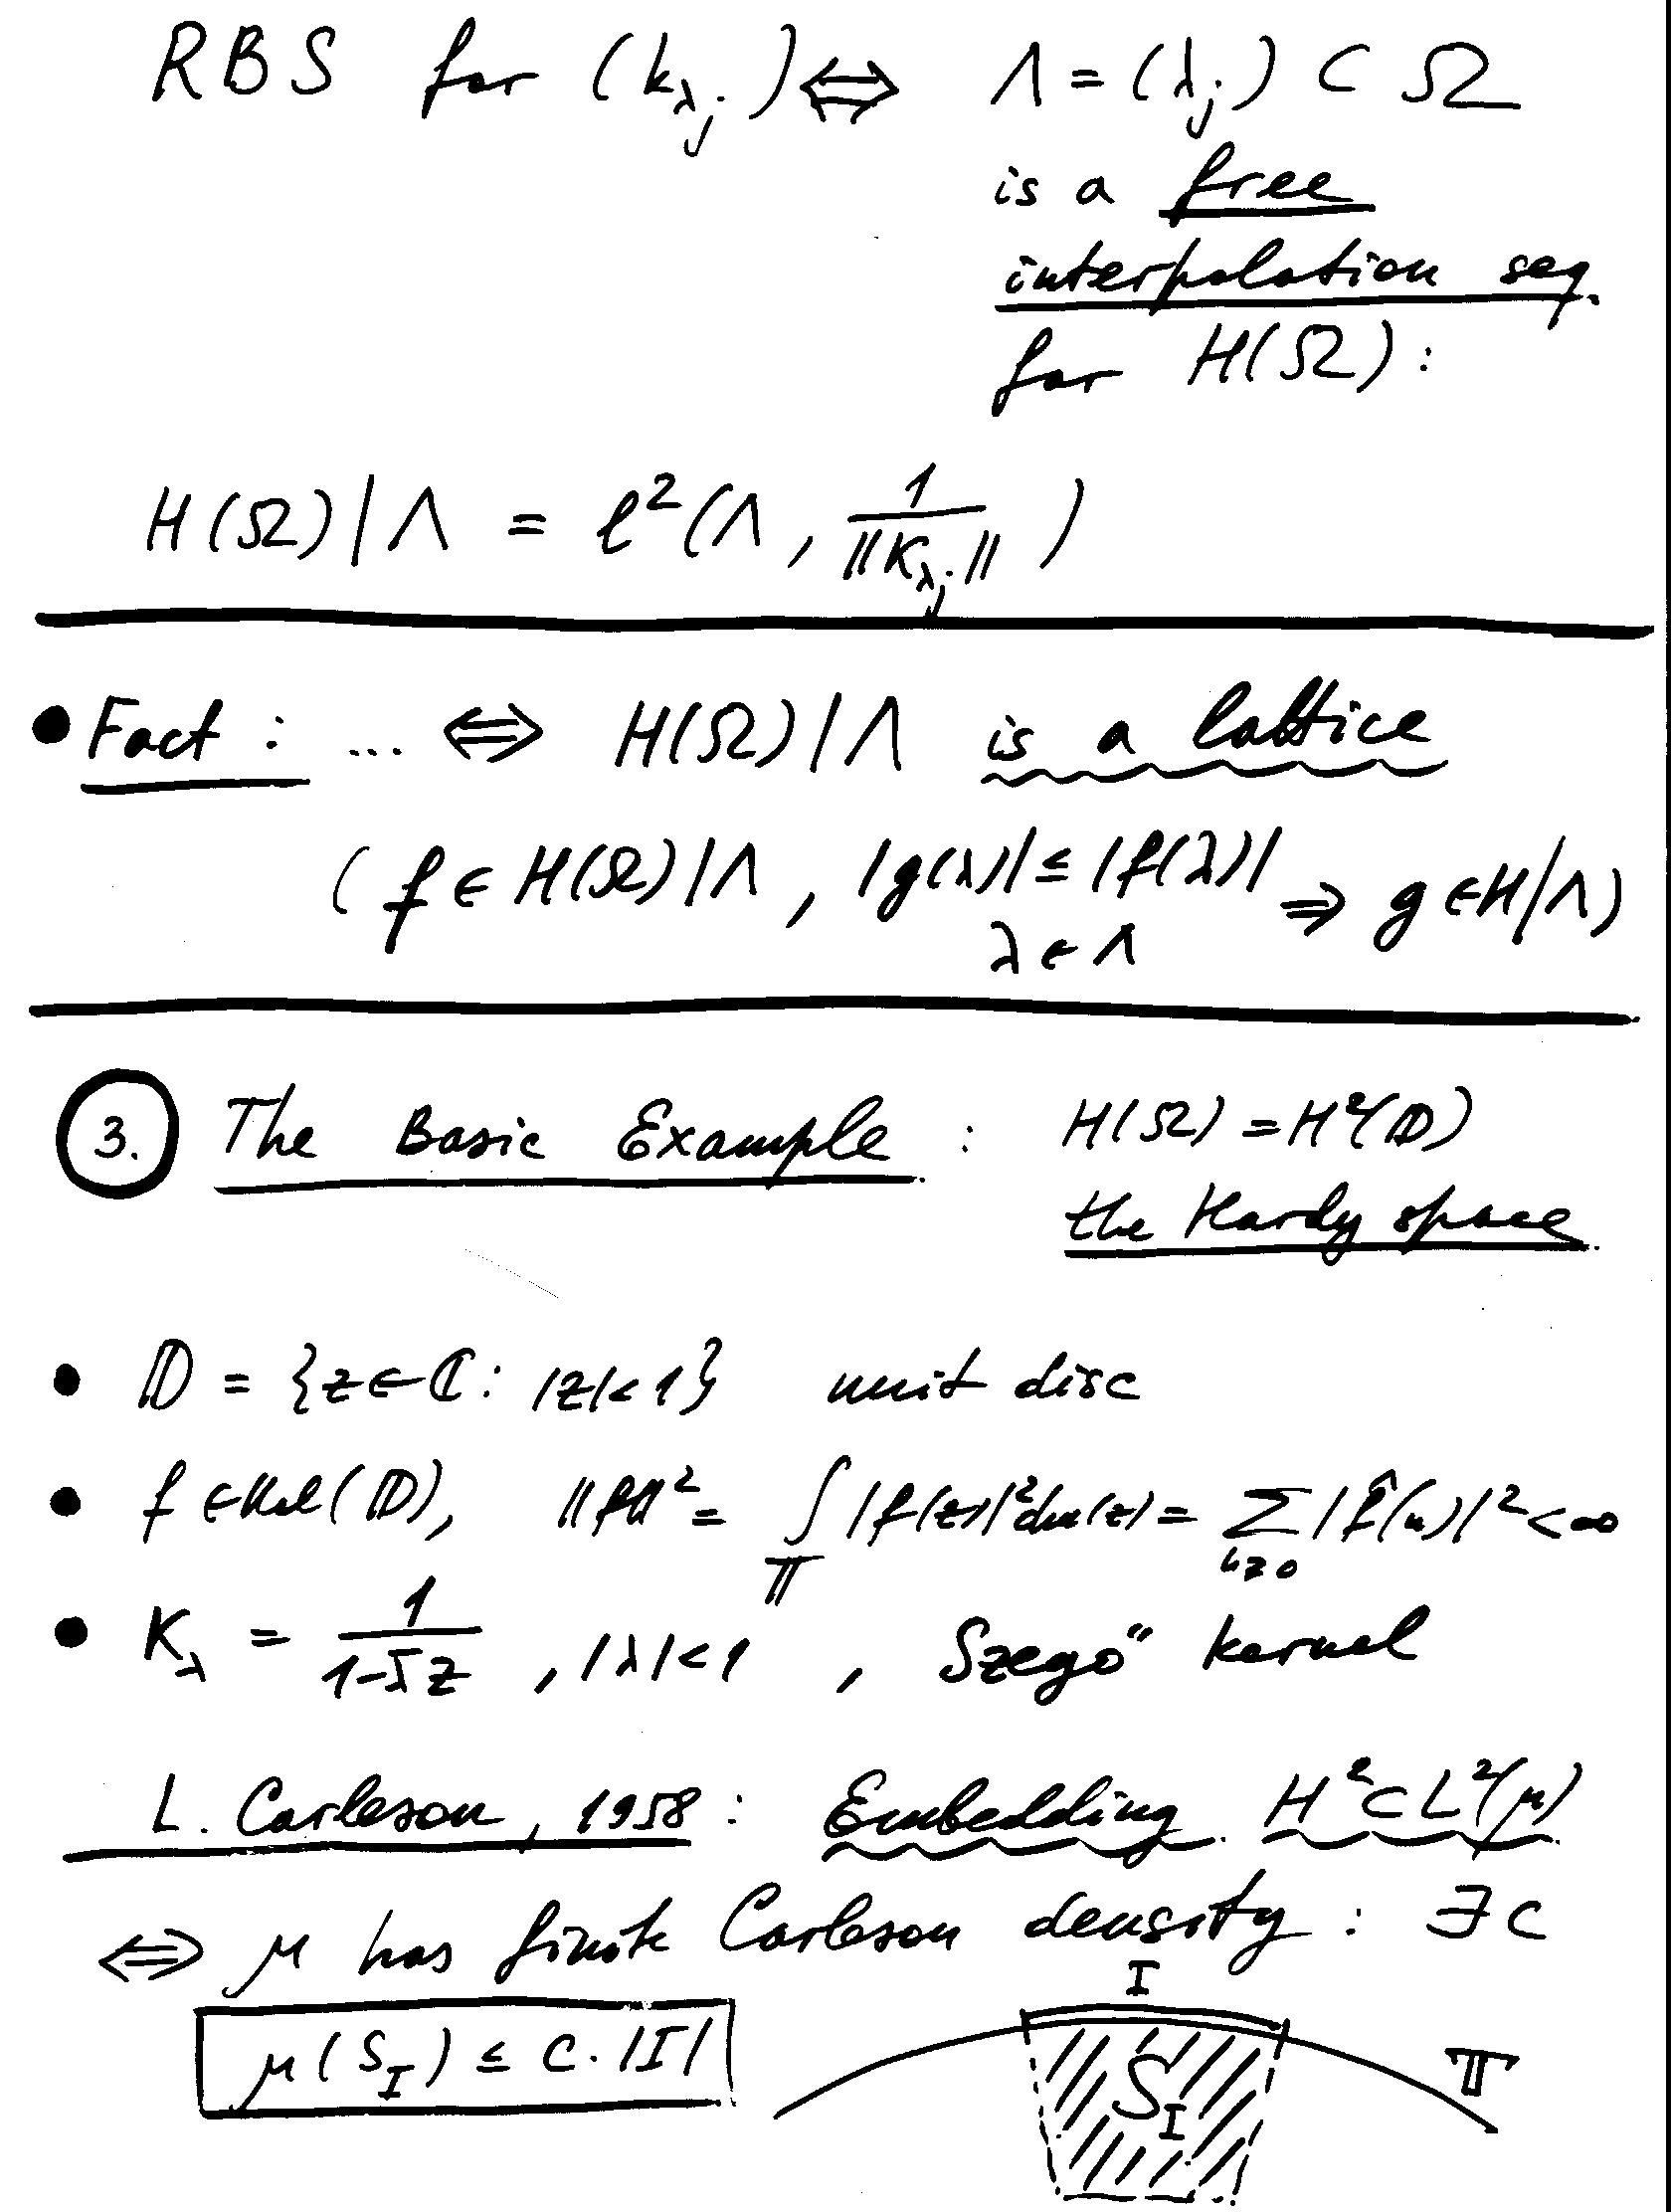 RBS for (k_{λ_j}) ⇔ Λ = (λ_j) ⊂ Ω
is a free
interpolation seq.
for H(Ω):
H(Ω)|Λ = ℓ²(Λ, 1/‖K_{λ_j}‖)
• Fact: ... ⇔ H(Ω)|Λ is a lattice
(f ∈ H(Ω)|Λ, |g(λ)| ≤ |f(λ)| ⇒ g ∈ H|Λ)
λ ∈ Λ
3. The Basic Example: H(Ω) = H²(𝔻)
the Hardy space.
• 𝔻 = {z ∈ ℂ: |z| < 1} unit disc
• f ∈ Hol(𝔻), ‖f‖² = ∫_𝕋 |f(z)|² dm(z) = Σ_{n≥0} |f̂(n)|² < ∞
• K_λ = 1/(1-λ̄z), |λ| < 1, Szegő kernel
L. Carleson, 1958: Embedding H² ⊂ L²(μ)
⇔ μ has finite Carleson density: ∃ C
I
μ(S_I) ≤ C·|I|
S_I
𝕋